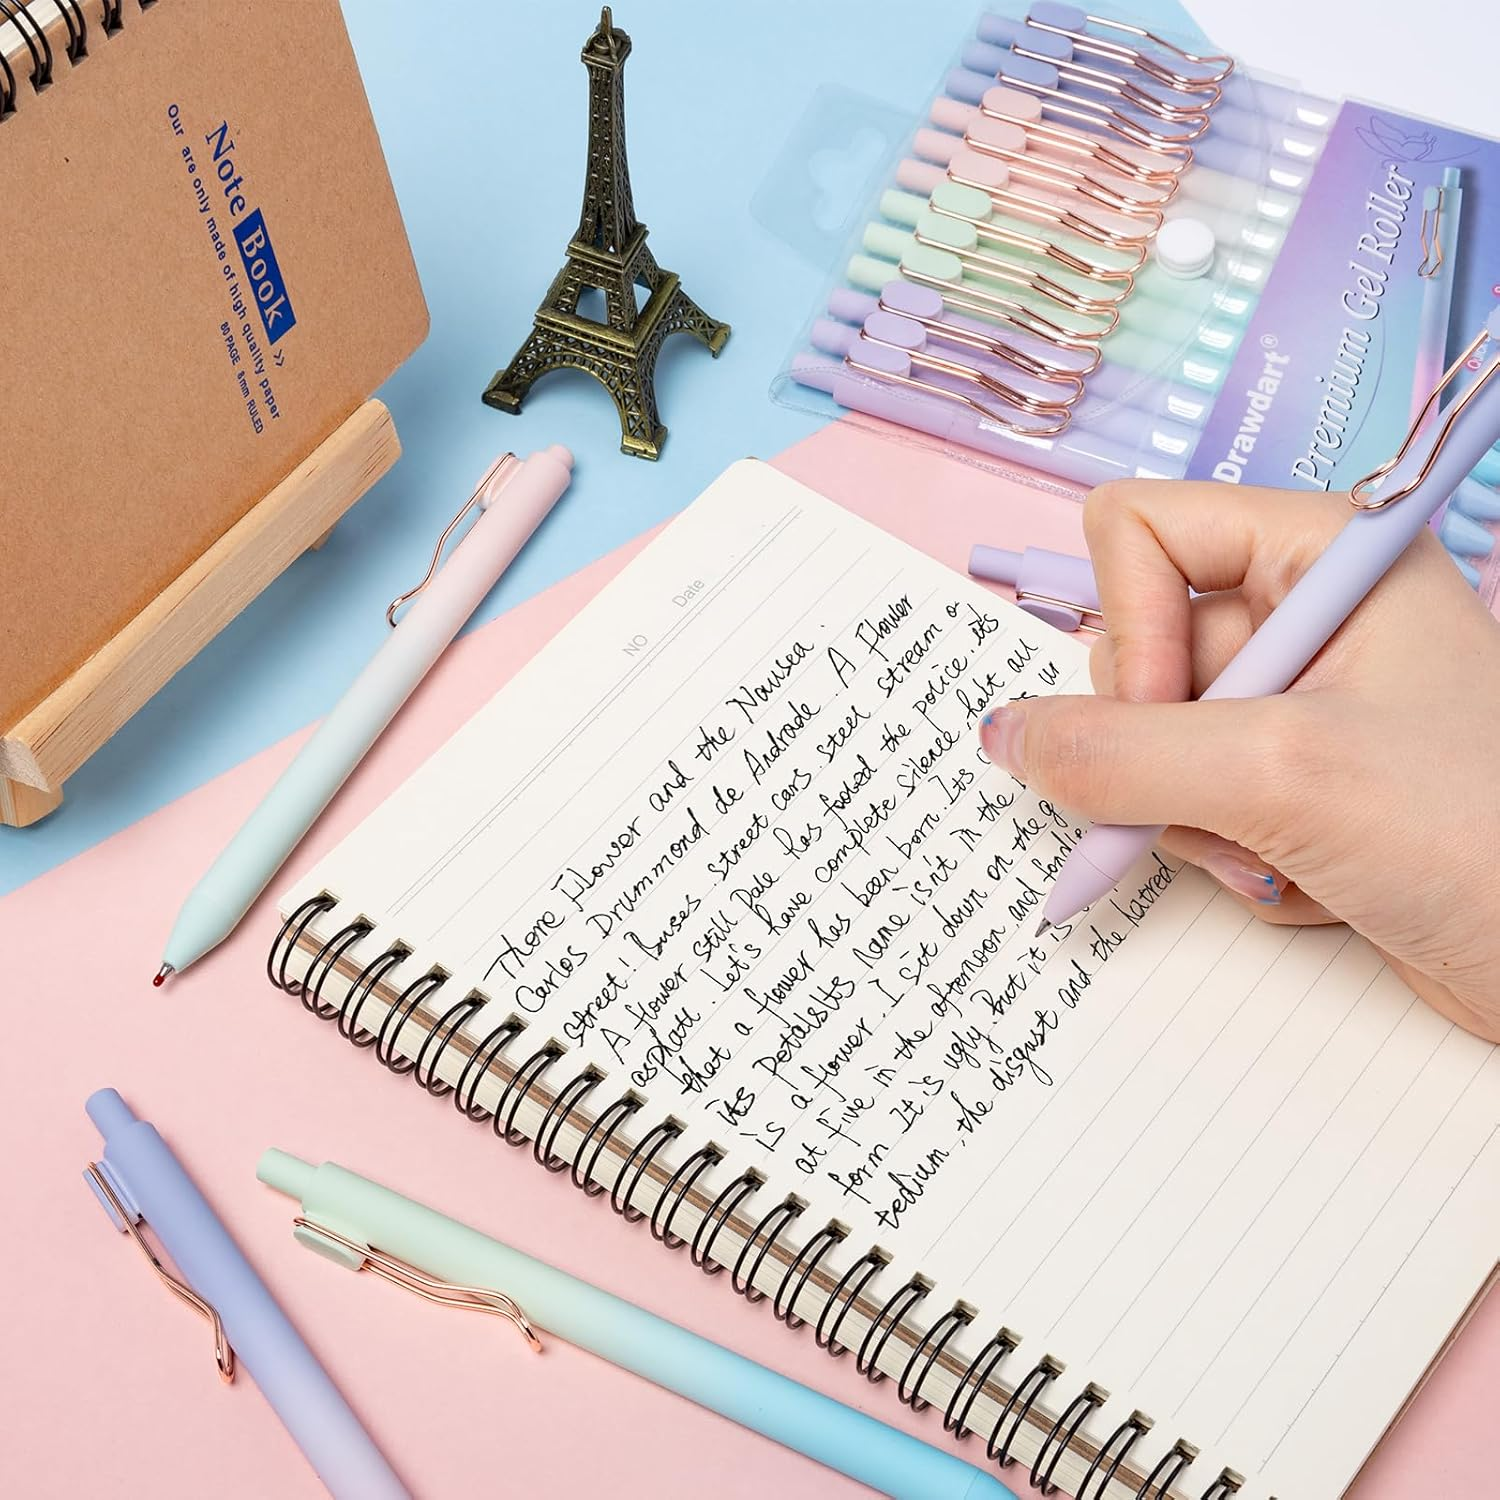 Note Book >>
Our are only made of high quality paper
80 PAGE 8mm RULED
Drawdart®
Premium Gel Roller
NO
Date
There Flower and the Nausea.
Carlos Drummond de Andrade. A Flower
street! Buses. street cars. steel stream o
A flower still Pale has fooled the police. its
asphatt. Let's have complete silence, halt all
that a flower has been born. Its
its Petals Its name isn't in the in
is a flower. I sit down on the g
at five in the afternoon and fondle
form It is ugly. but it is
tedium, the disgust and the hatred